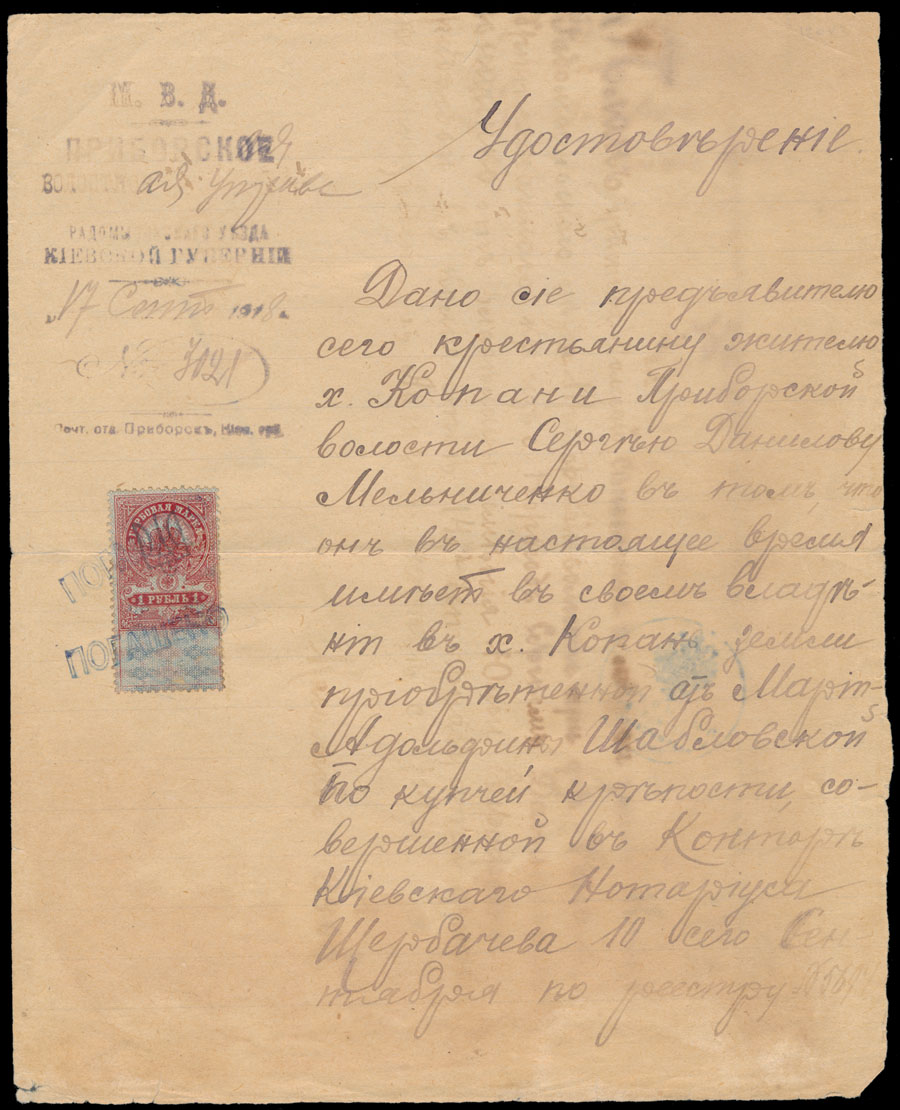 М. В. Д.
ПРИБОРСКОЕ
РАДОМЫСЛЬСКАГО УѢЗДА
КІЕВСКОЙ ГУБЕРНІИ
„17 Сент 1918.
№ 3021
Почт. отд. Приборскъ, Кіев. губ.
ГЕРБОВАЯ МАРКА
1 РУБЛЬ 1
ПОГАШЕНО
ПОГАШЕНО
Удостовѣреніе.
Дано сіе предъявителю
сего крестьянину жителю
х. Копани Приборской
волости Сергѣю Данилову
Мельниченко въ томъ, что
онъ въ настоящее время
имѣетъ въ своемъ владѣ-
ніи въ х. Копань земли
пріобрѣтенной отъ Маріи
Адольфины Шабловской
по купчей крѣпости, со-
вершенной въ Конторѣ
Кіевскаго Нотаріуса
Щербачева 10 сего Сен-
тября по реестру №